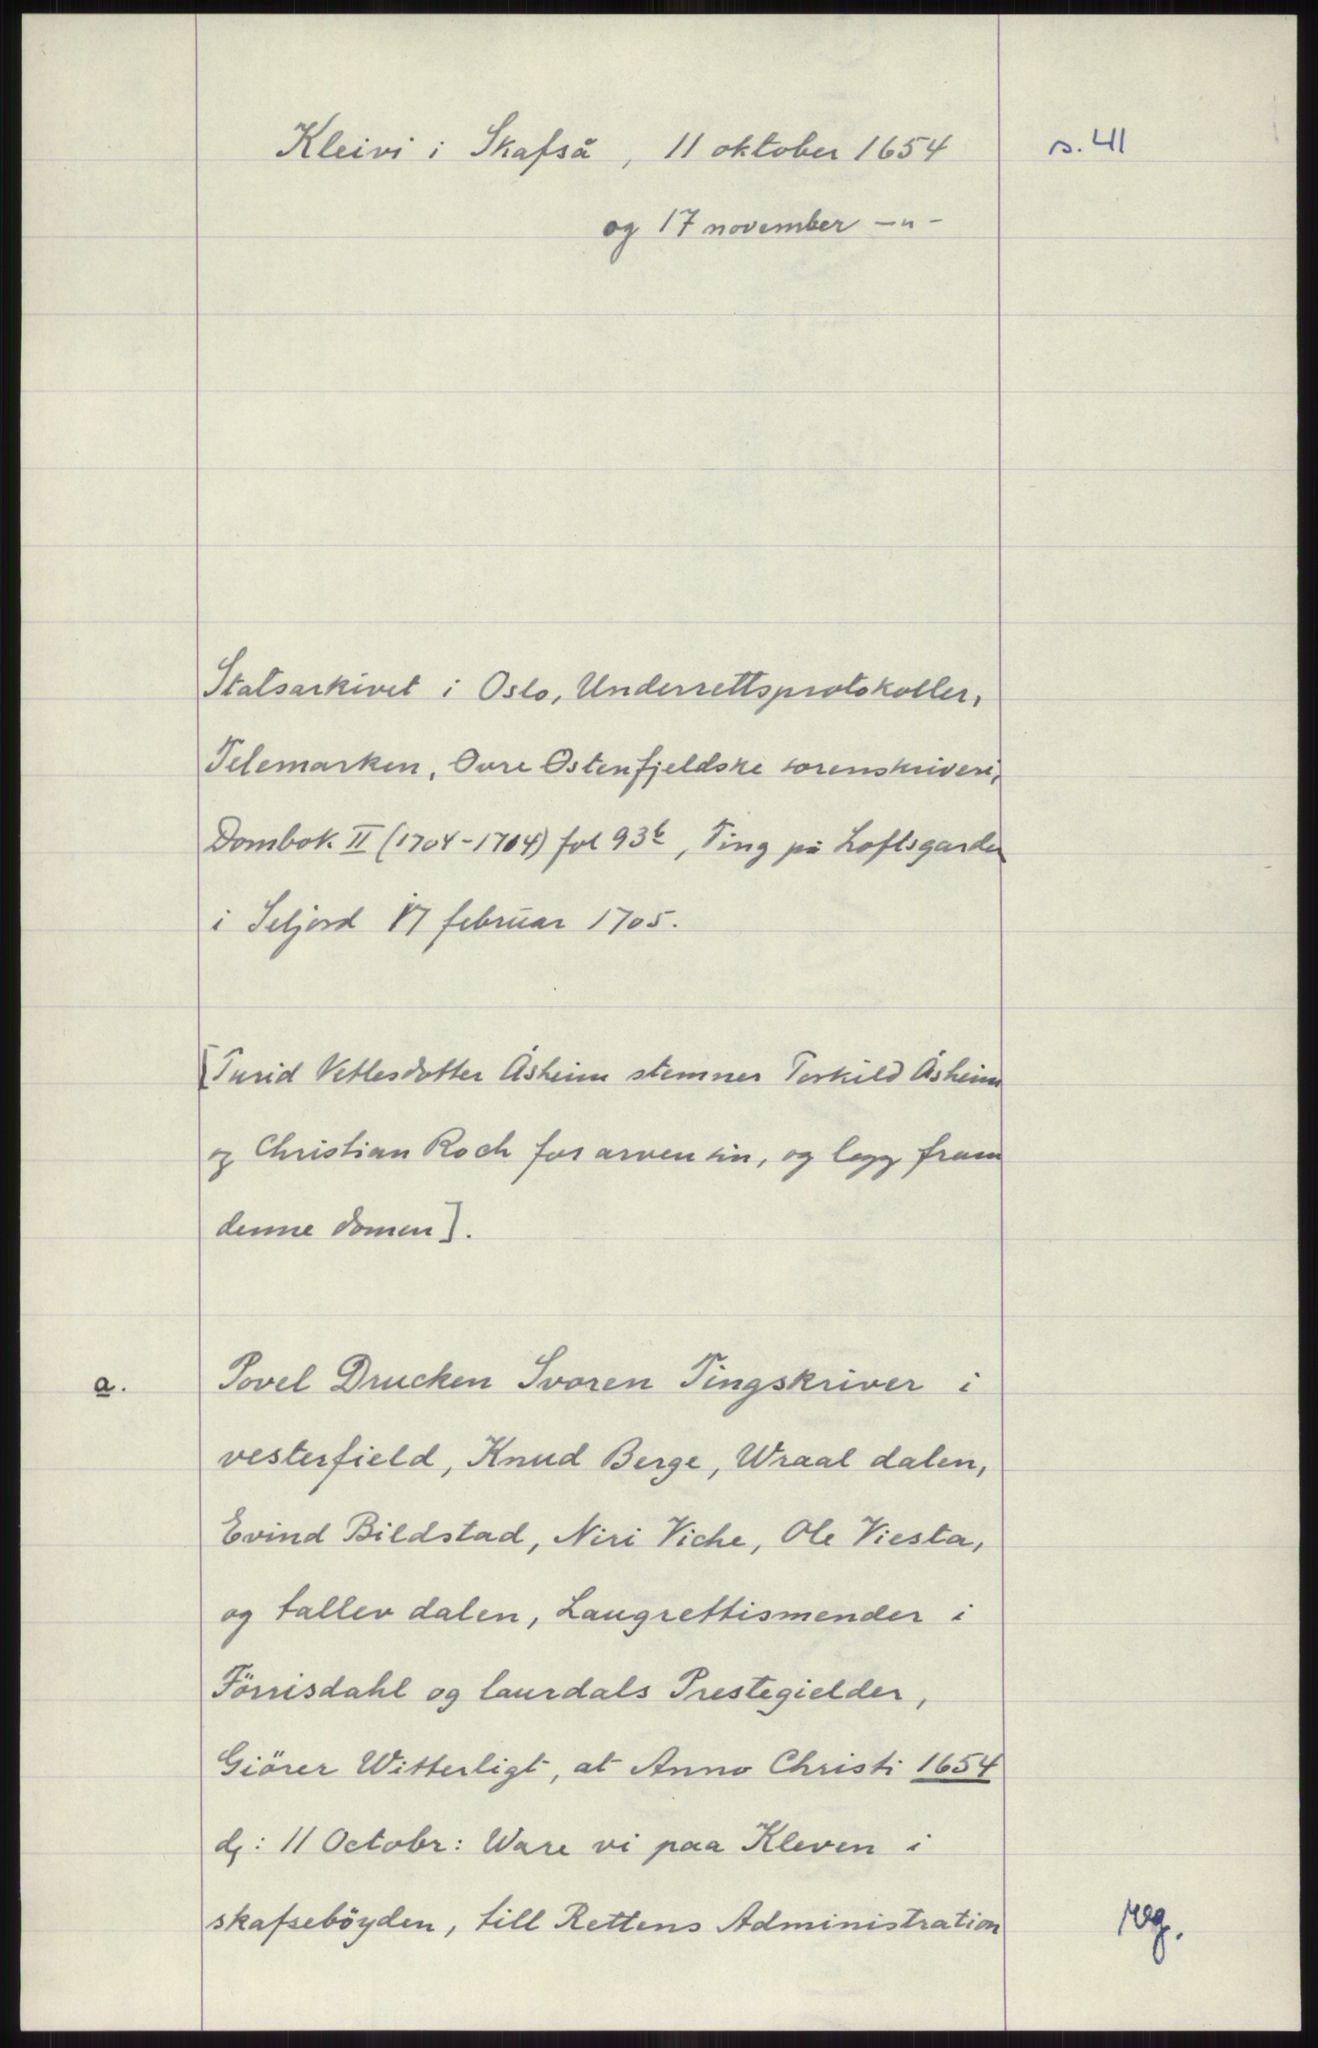 Kleivi i Skafså, 11 oktober 1654 s. 41
og 17 november —„—
Statsarkivet i Oslo, Underrettsprotokoller,
Telemarken, Øvre Østenfjeldske sorenskriveri,
Dombok II (1704-1704) fol 93b, Ting på Loftsgarden
i Seljord 17 februar 1705.
[Turid Vetlesdotter Åsheim stemner Torkild Åsheim
og Christian Roch for arven sin, og legg fram
denne domen].
a. Povel Drucken Svoren Tingskriver i
vesterfield, Knud Berge, Wraal dalen,
Evind Bildstad, Niri Viche, Ole Viesta,
og tallev dalen, Laugrettismender i
Förrisdahl og laurdals Prestegielder,
Giörer Witterligt, at Anno Christi 1654
d: 11 Octobr: Ware vi paa Kleven i
skafseböyden, till Rettens Administration
reg.